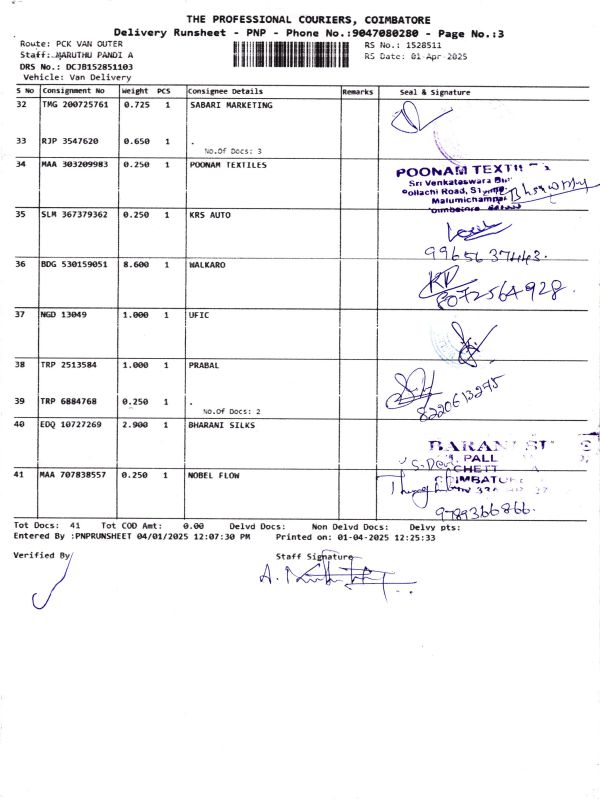 THE PROFESSIONAL COURIERS, COIMBATORE
Delivery Runsheet - PNP - Phone No.:9047080280 - Page No.:3
Route: PCK VAN OUTER RS No.: 1528511
Staff: MARUTHU PANDI A RS Date: 01-Apr-2025
DRS No.: DCJB152851103
Vehicle: Van Delivery
S No Consignment No Weight PCS Consignee Details Remarks Seal & Signature
32 TMG 200725761 0.725 1 SABARI MARKETING
33 RJP 3547620 0.650 1 .
No.Of Docs: 3
34 MAA 303209983 0.250 1 POONAM TEXTILES
POONAM TEXTIL
Sri Venkateswara
Pollachi Road,
Malumichampa
35 SLM 367379362 0.250 1 KRS AUTO
99656 37443.
36 BDG 530159051 8.600 1 WALKARO
KP
8072564928.
37 NGD 13049 1.000 1 UFIC
38 TRP 2513584 1.000 1 PRABAL
39 TRP 6884768 0.250 1 .
8220613295
No.Of Docs: 2
40 EDQ 10727269 2.900 1 BHARANI SILKS
PALL
CHETT
41 MAA 707838557 0.250 1 NOBEL FLOW
9789366866.
Tot Docs: 41 Tot COD Amt: 0.00 Delvd Docs: Non Delvd Docs: Delvy pts:
Entered By :PNPRUNSHEET 04/01/2025 12:07:30 PM Printed on: 01-04-2025 12:25:33
Verified By Staff Signature